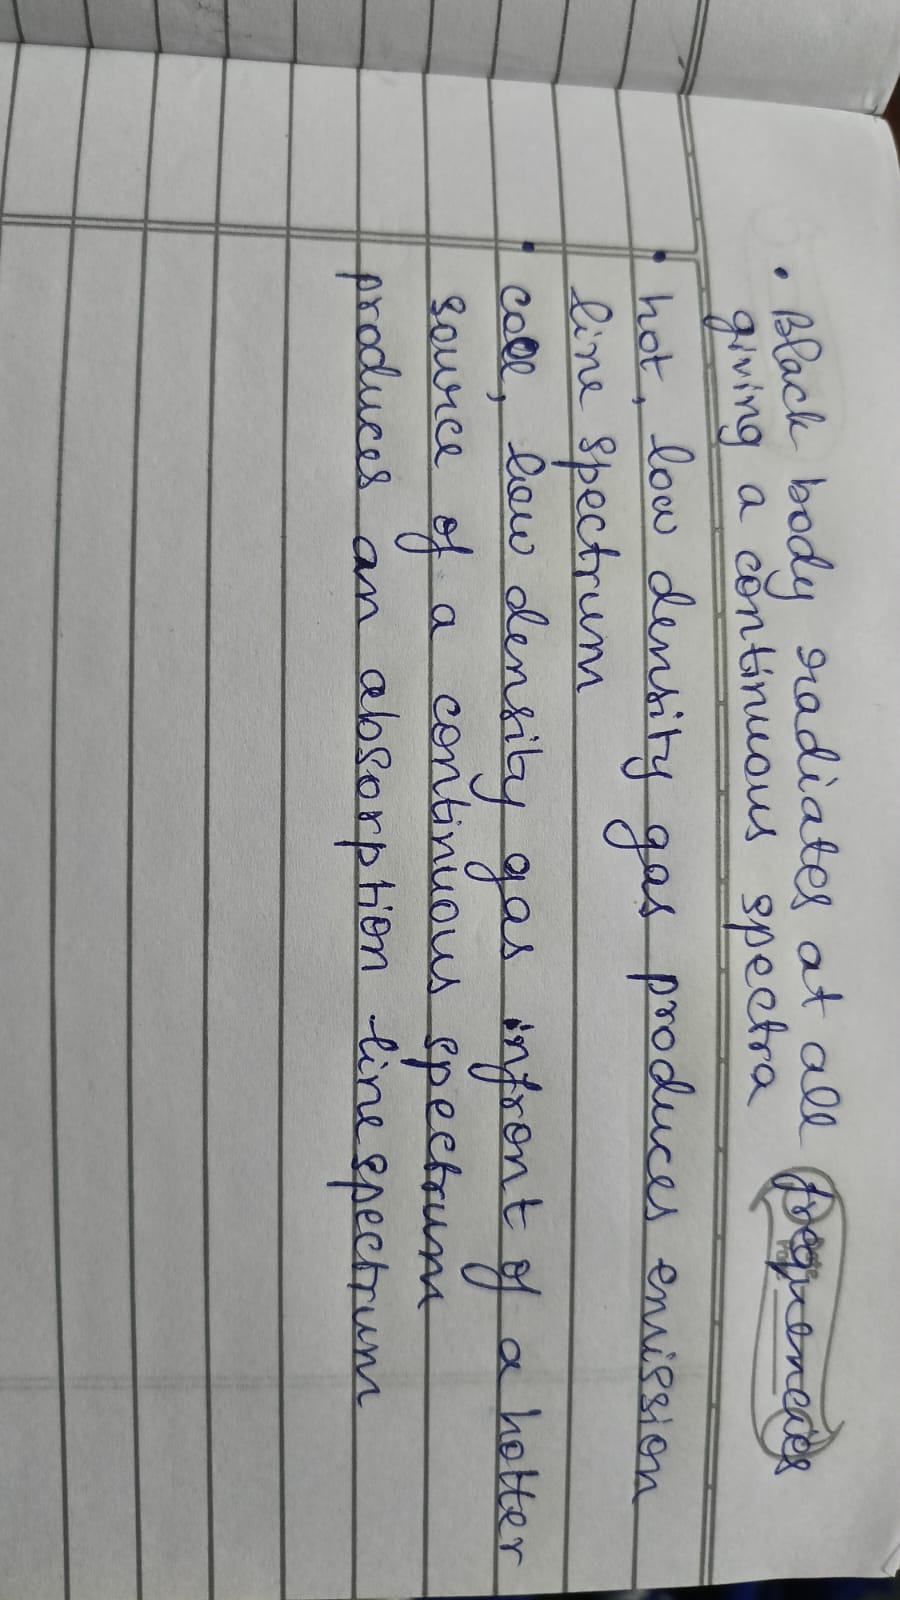 • Black body radiates at all frequencies
giving a continuous spectra
• hot, low density gas produces emission
line spectrum
• cool, low density gas infront of a hotter
source of a continuous spectrum
produces an absorption line spectrum